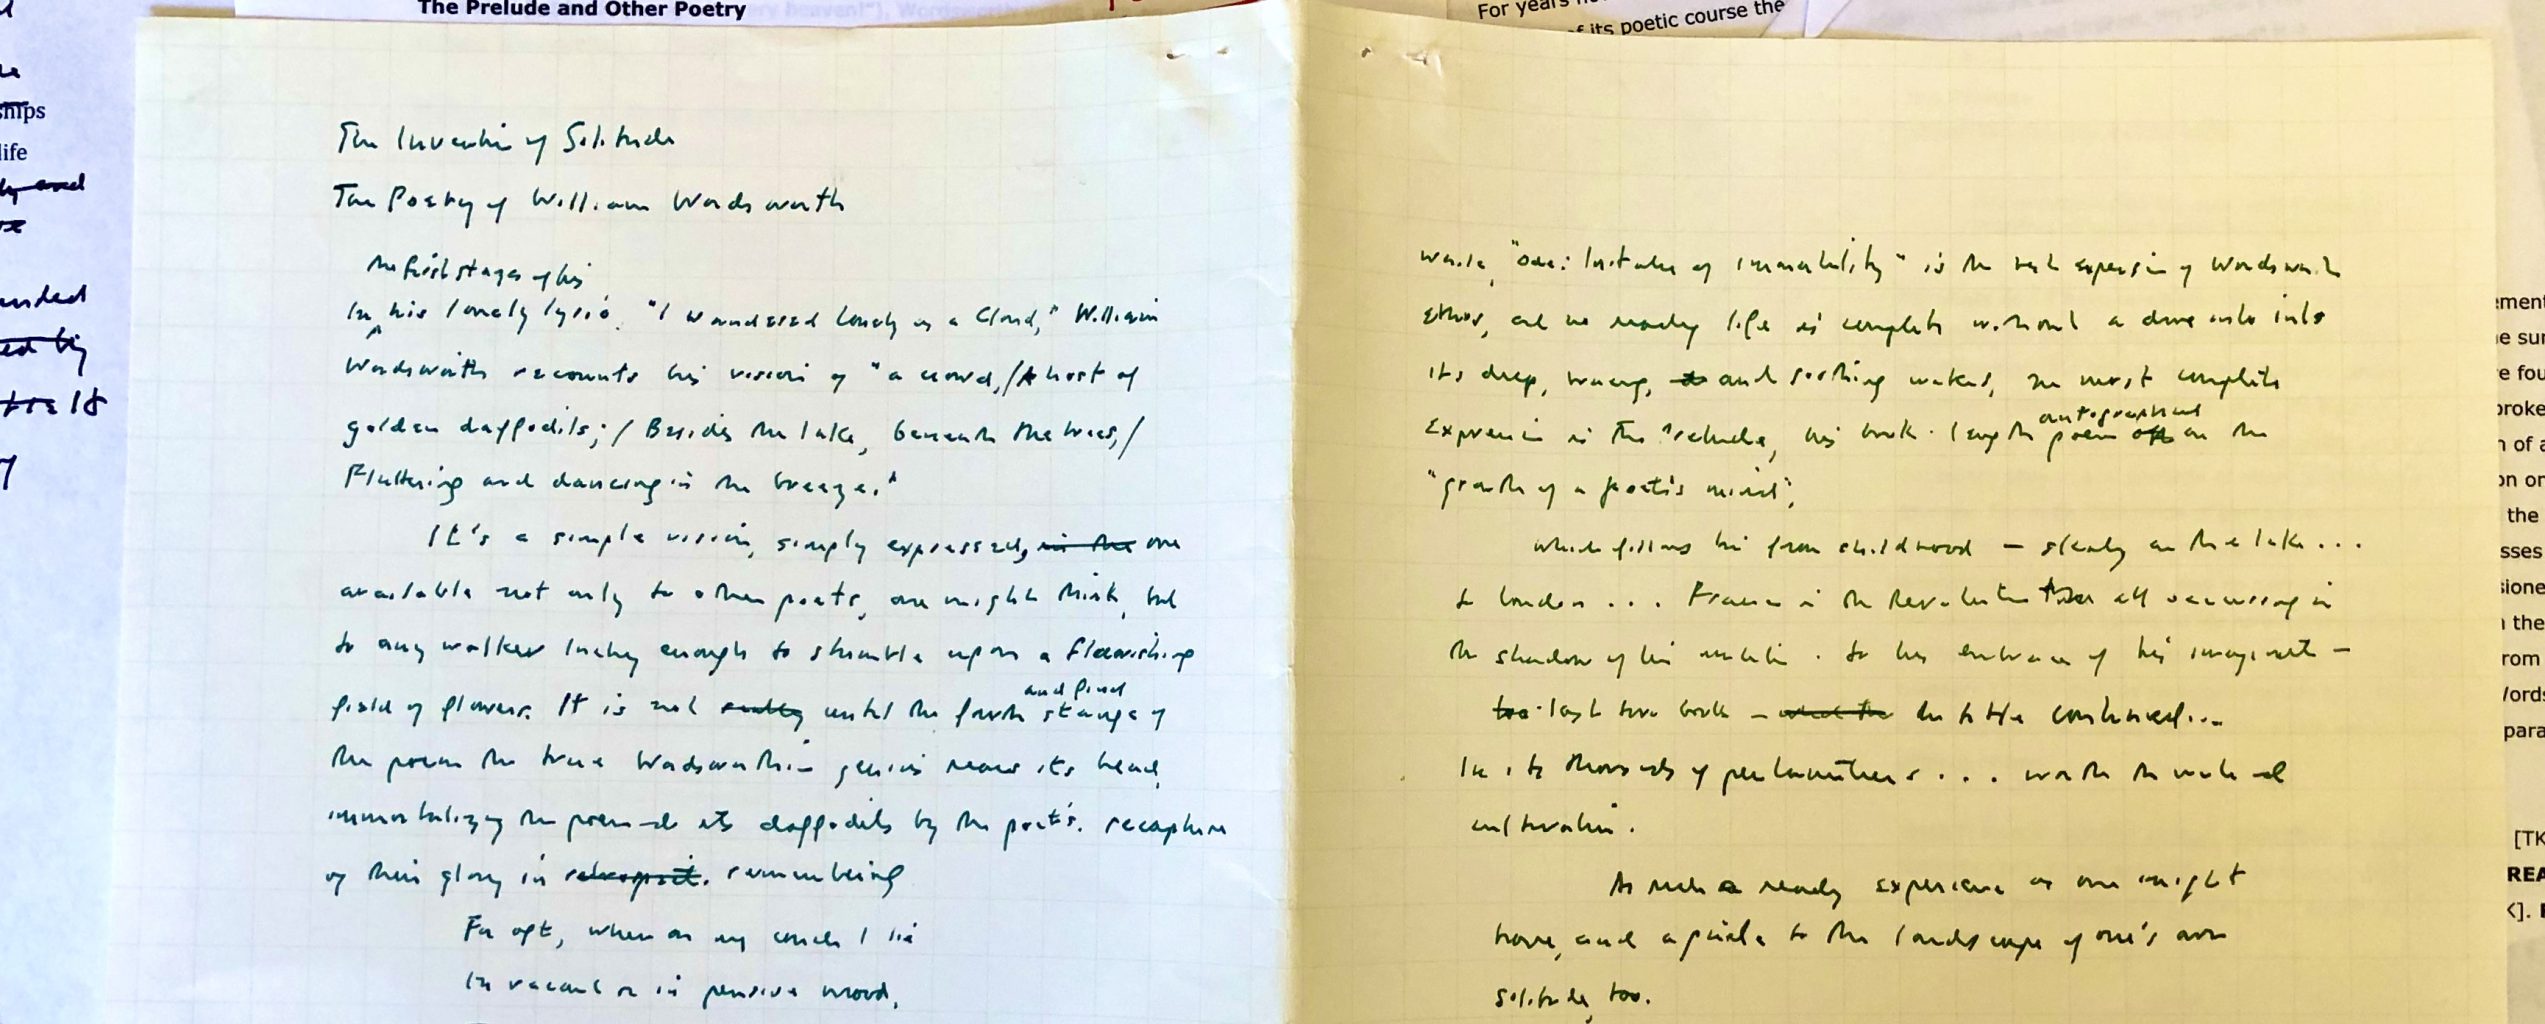 The Prelude and Other Poetry
For years
of its poetic course the
ships
life
The Invention of Solitude
The Poetry of William Wordsworth
the first stages of his
In his lonely lyric, "I wandered lonely as a Cloud," William
Wordsworth recounts his vision of "a crowd,/A host of
golden daffodils;/Beside the lake, beneath the trees,/
Fluttering and dancing in the breeze."
It's a simple vision, simply expressed, in the one
available not only to other poets, one might think, but
to any walker lucky enough to stumble upon a flourishing
field of flowers. It is not really until the fourth stanza of
and final
the poem the true Wordsworthian genius rears its head,
immortalizing the poem and its daffodils by the poet's recapture
of their glory in retrospect. remembering
For oft, when on my couch I lie
In vacant or in pensive mood,
"Ode: Intimations of Immortality" is the expression of Wordsworth
ethos, and no reading life is complete without a dive into
its deep, and soothing waters, the most complete
autographical
expression is The Prelude, his book-length poem on the
"growth of a poet's mind",
which follows him from childhood — on the lake...
to London... France in the Revolution all occurring in
the shadow of his to his embrace of his imagination —
last two books — the title
In its thousands of pentameters... worth the and
cultivation.
As rich a reading experience as one might
have, and a guide to the landscape of one's own
solitude, too.
the
para
[TK
REA